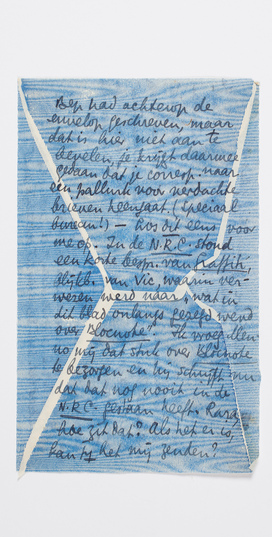 Bep had achterop de
envelop geschreven, maar
dat is hier niet aan te
bevelen, je krijgt daarmee
gedaan dat je corresp. naar
een voor verdachte
brieven heengaat. (speciaal
bureau!) — los dit eens voor
me op. In de N.R.C. stond
een korte besp. van Graffiti,
blijkb. van Vic, waarin ver-
wezen werd naar, wat in
dit blad onlangs gezegd werd
over "Blocnote". Ik vroeg
no mij dat stuk over blocnote
te bezorgen en hij schrijft nu
dat dat nog nooit in de
N.R.C. gestaan heeft. Rara,
hoe zit dat? Als het er is,
kan jij het mij zenden?